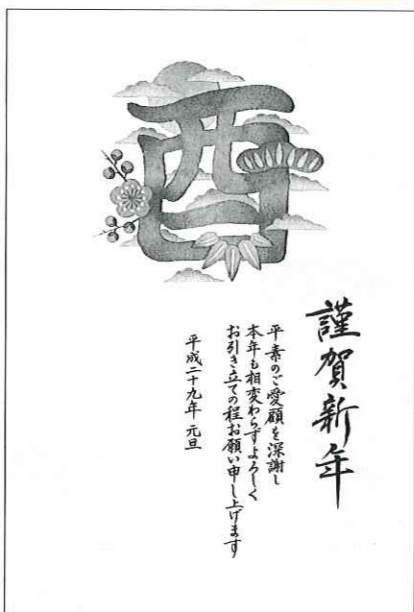 酉
謹賀新年
平素のご愛顧を深謝し
本年も相変わらずよろしく
お引き立ての程お願い申し上げます
平成二十九年 元旦